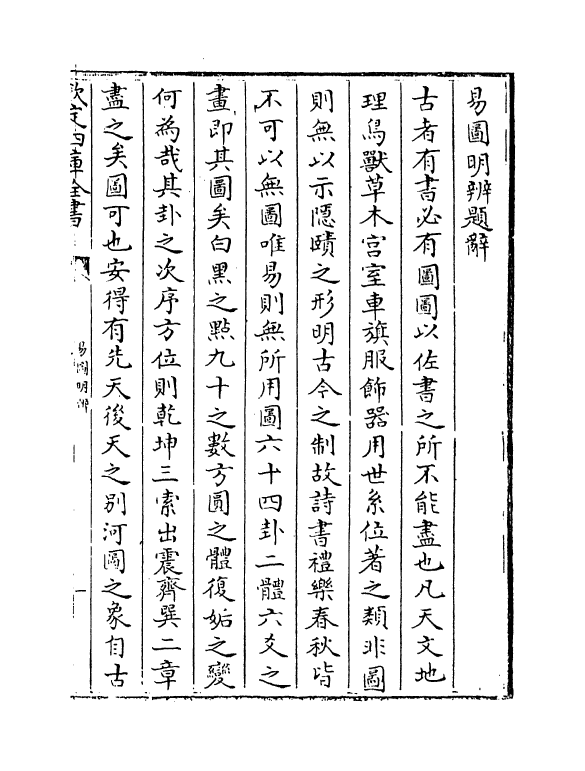 易圖明辨題辭
古者有書必有圖圖以佐書之所不能盡也凡天文地
理鳥獸草木宫室車旗服飾器用世系位著之類非圖
則無以示隱賾之形明古今之制故詩書禮樂春秋皆
不可以無圖唯易則無所用圖六十四卦二體六爻之
畫即其圖矣白黑之㸃九十之數方圓之體復姤之變
何為哉其卦之次序方位則乾坤三索出震齊巽二章
盡之矣圖可也安得有先天後天之别河圖之象自古
欽定四庫全書
易圖明辨
一